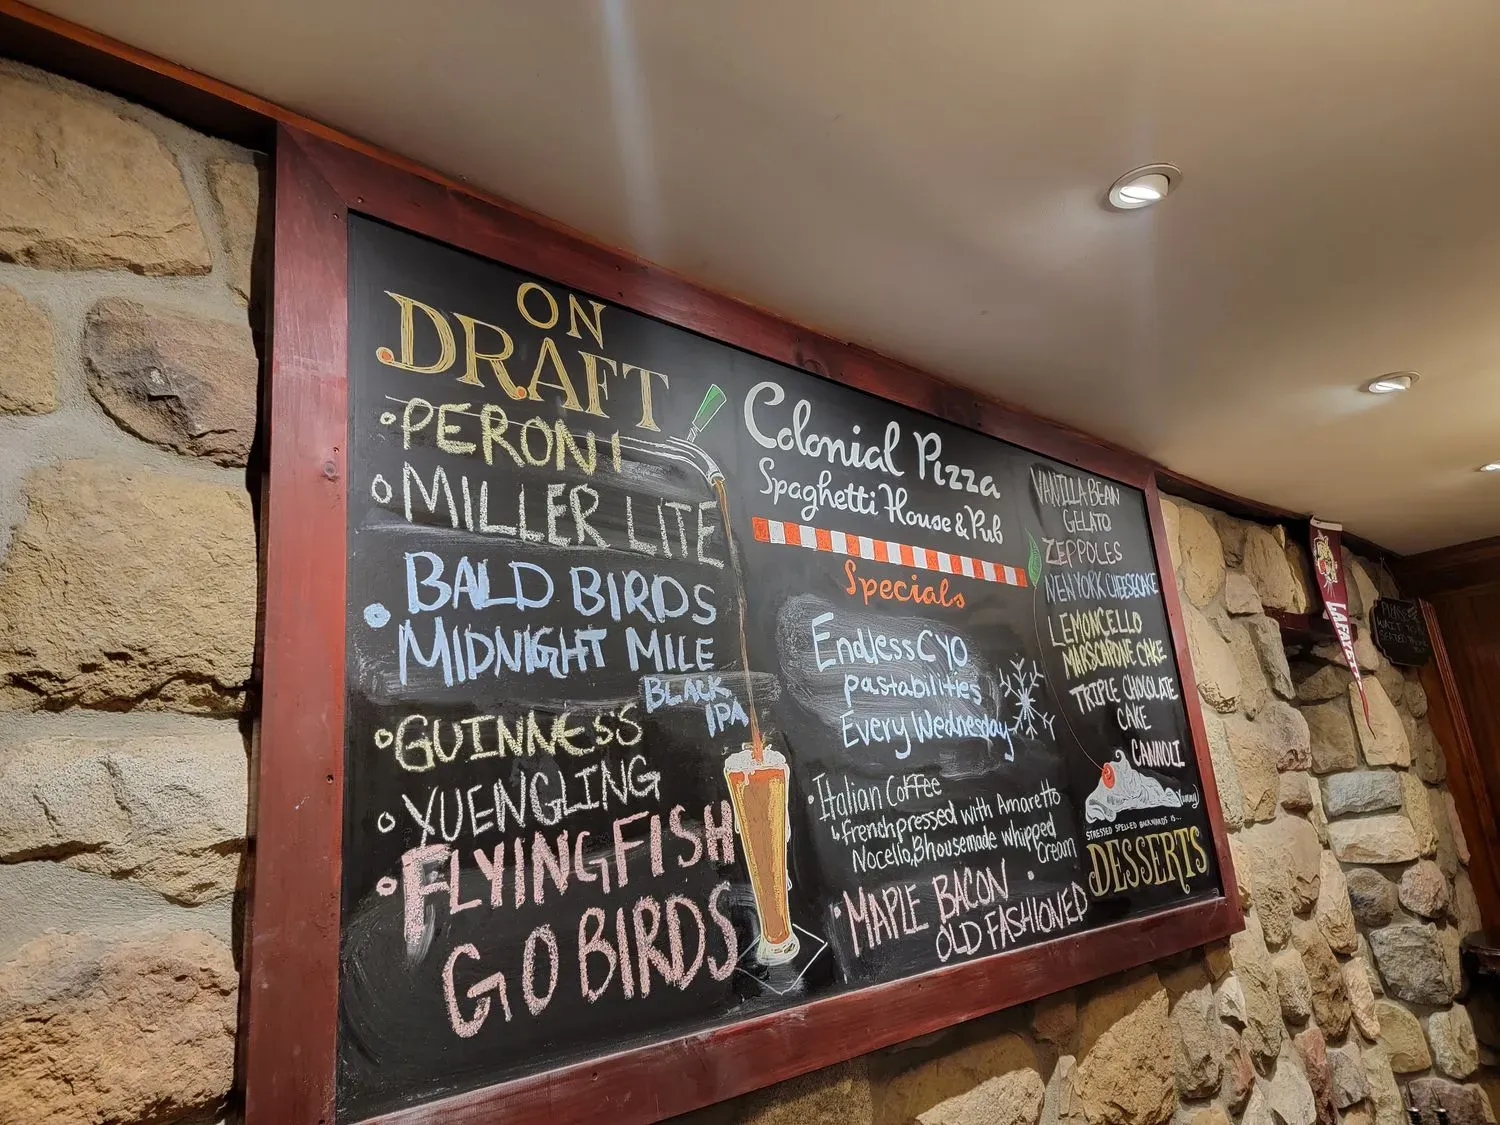 ON
DRAFT
PERONI
MILLER LITE
BALD BIRDS
MIDNIGHT MILE
BLACK
IPA
GUINNESS
YUENGLING
FLYING FISH
GO BIRDS
Colonial Pizza
Spaghetti House & Pub
Specials
Endless CYO
pastabilities
Every Wednesday
Italian Coffee
frenchpressed with Amaretto
Nocello, & housemade whipped
cream
MAPLE BACON
OLD FASHIONED
VANILLA BEAN
GELATO
ZEPPOLES
NEW YORK CHEESECAKE
LEMONCELLO
MARSCARONE CAKE
TRIPLE CHOCOLATE
CAKE
CANNOLI
(yummy)
STRESSED SPELLED BACKWARDS IS...
DESSERTS
LAFAYETTE
PLEASE
WAIT TO BE
SEATED